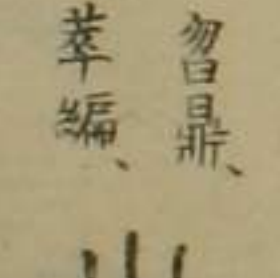 曶鼎、
萃編、